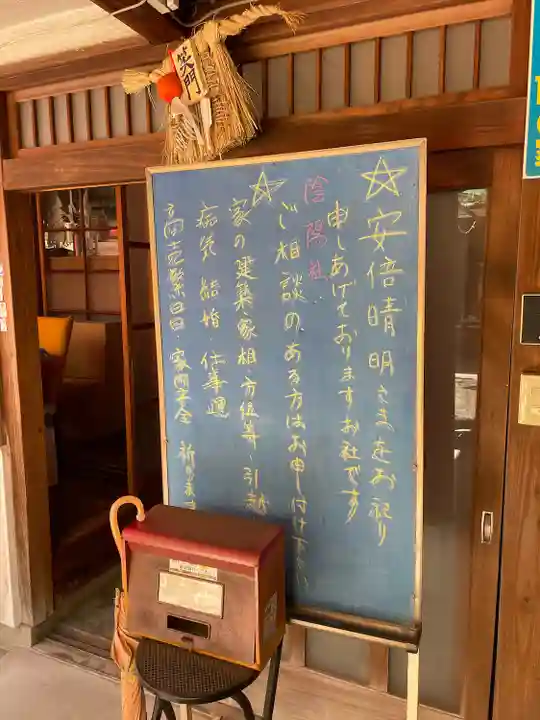 笑門
☆安倍晴明さまをお祀り
申しあげておりますお社です
陰陽社
ご相談のある方はお申し付け下さい
☆家の建築・家相・方位等・引越
病気 結婚・仕事運
商売繁昌・家内安全 祈ります